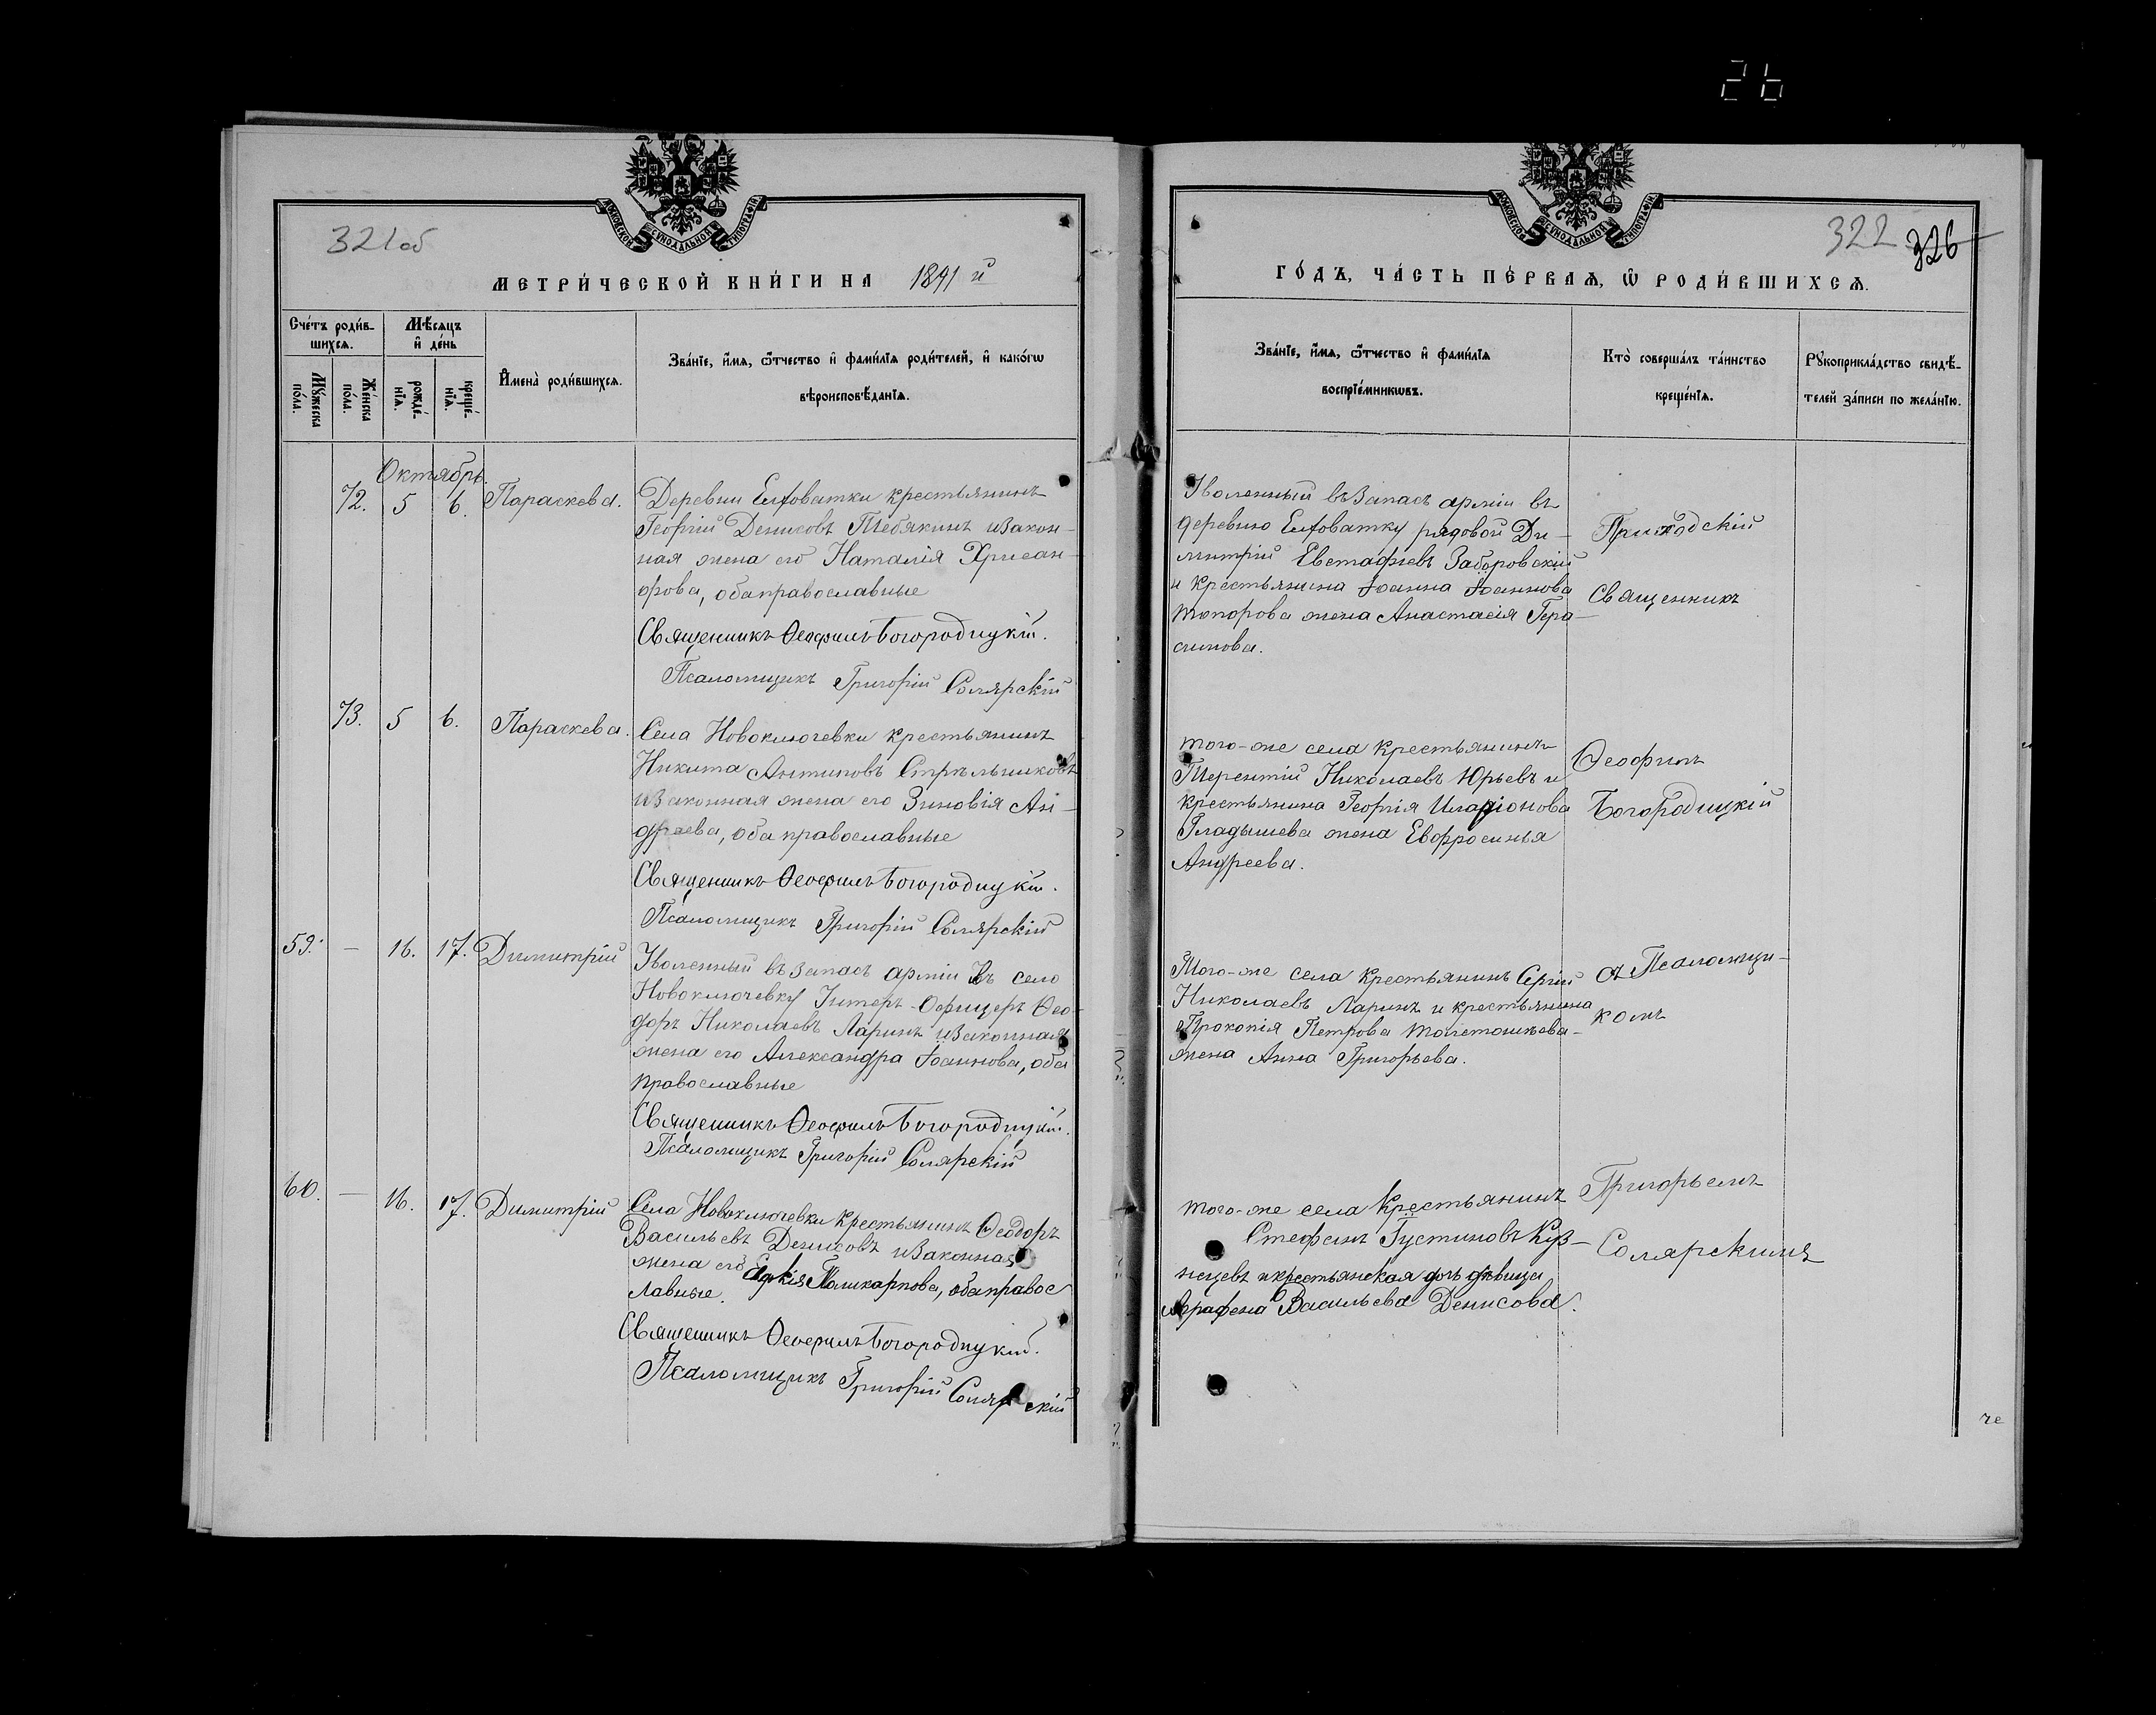 26
МОСКОВСКОЙ СѴНОДАЛЬНОЙ ТИПОГРАФІИ
321об
МЕТРИ́ЧЕСКОЙ КНИ́ГИ НА 1891 й
Сче́тъ роди́в-
шихсѧ.
Мѣ́сѧцъ
и҆ де́нь
Мꙋ́жеска
по́ла.
Же́нска
по́ла.
рожде́-
нїѧ.
креще́-
нїѧ.
И҆мена̀ роди́вшихсѧ.
Зва́нїе, и҆́мѧ, ѻ҆́тчество и҆ фами́лїѧ роди́телей, и҆ како́гѡ
вѣроисповѣ́данїѧ.
Октябрь.
72. 5 6. Параскева.
Деревни Елховатки крестьянинъ
Георгій Денисовъ Тебякинъ и закон-
ная жена его Наталія Хрисан-
фова, оба православные
Священникъ Ѳеофилъ Богородицкій.
Псаломщикъ Григорій Солярскій
73. 5 6. Параскева.
Села Новоключевки крестьянинъ
Никита Антиповъ Стрѣльниковъ
и законная жена его Зиновія Ан-
дреева, оба православные
Священникъ Ѳеофилъ Богородицкій.
Псаломщикъ Григорій Солярскій
59. — 16. 17. Димитрій
Уволенный въ запасъ арміи въ село
Новоключевку Унтеръ-Офицеръ Ѳео-
доръ Николаевъ Ларинъ и законная
жена его Александра Іоаннова, оба
православные
Священникъ Ѳеофилъ Богородицкій.
Псаломщикъ Григорій Солярскій
60. — 16. 17. Димитрій
Села Новоключевки крестьянинъ Ѳеодоръ
Васильевъ Денисовъ и законная
жена его Поликарпова, оба правос
лавные.
Священникъ Ѳеофилъ Богородицкій.
Псаломщикъ Григорій Солярскій
МОСКОВСКОЙ СѴНОДАЛЬНОЙ ТИПОГРАФІИ
322 326
ГО́ДЪ, ЧА́СТЬ ПЕ́РВАѦ, Ѡ҆ РОДИ́ВШИХСѦ.
Зва́нїе, и҆́мѧ, ѻ҆́тчество и҆ фами́лїѧ
воспрїе́мникѡвъ.
Кто̀ соверша́лъ та́инство
креще́нїѧ.
Рꙋкоприкла́дство свидѣ́-
телей за́писи по жела́нїю.
Уволенный въ Запасъ арміи въ
деревню Елховатку рядовой Ди-
митрій Евстафіевъ Заборовскій
и крестьянина Іоанна Іоаннова
Топорова жена Анастасія Гера-
симова.
того-же села крестьянинъ
Терентій Николаевъ Юрьевъ и
крестьянина Георгія Иларіонова
Гладышева жена Евфросинья
Андреева.
Того-же села крестьянинъ Сергій
Николаевъ Ларинъ и крестьянина
Прокопія Петрова
жена Анна Григорьева.
того-же села Крестьянинъ
Стефанъ Густиновъ Куз-
нецевъ и крестьянская дочь дѣвица
Аграфена Васильева Денисова.
Приходскій
Священникъ
Ѳеофилъ
Богородицкій
съ Псаломщи-
комъ
Григорьемъ
Солярскимъ
че